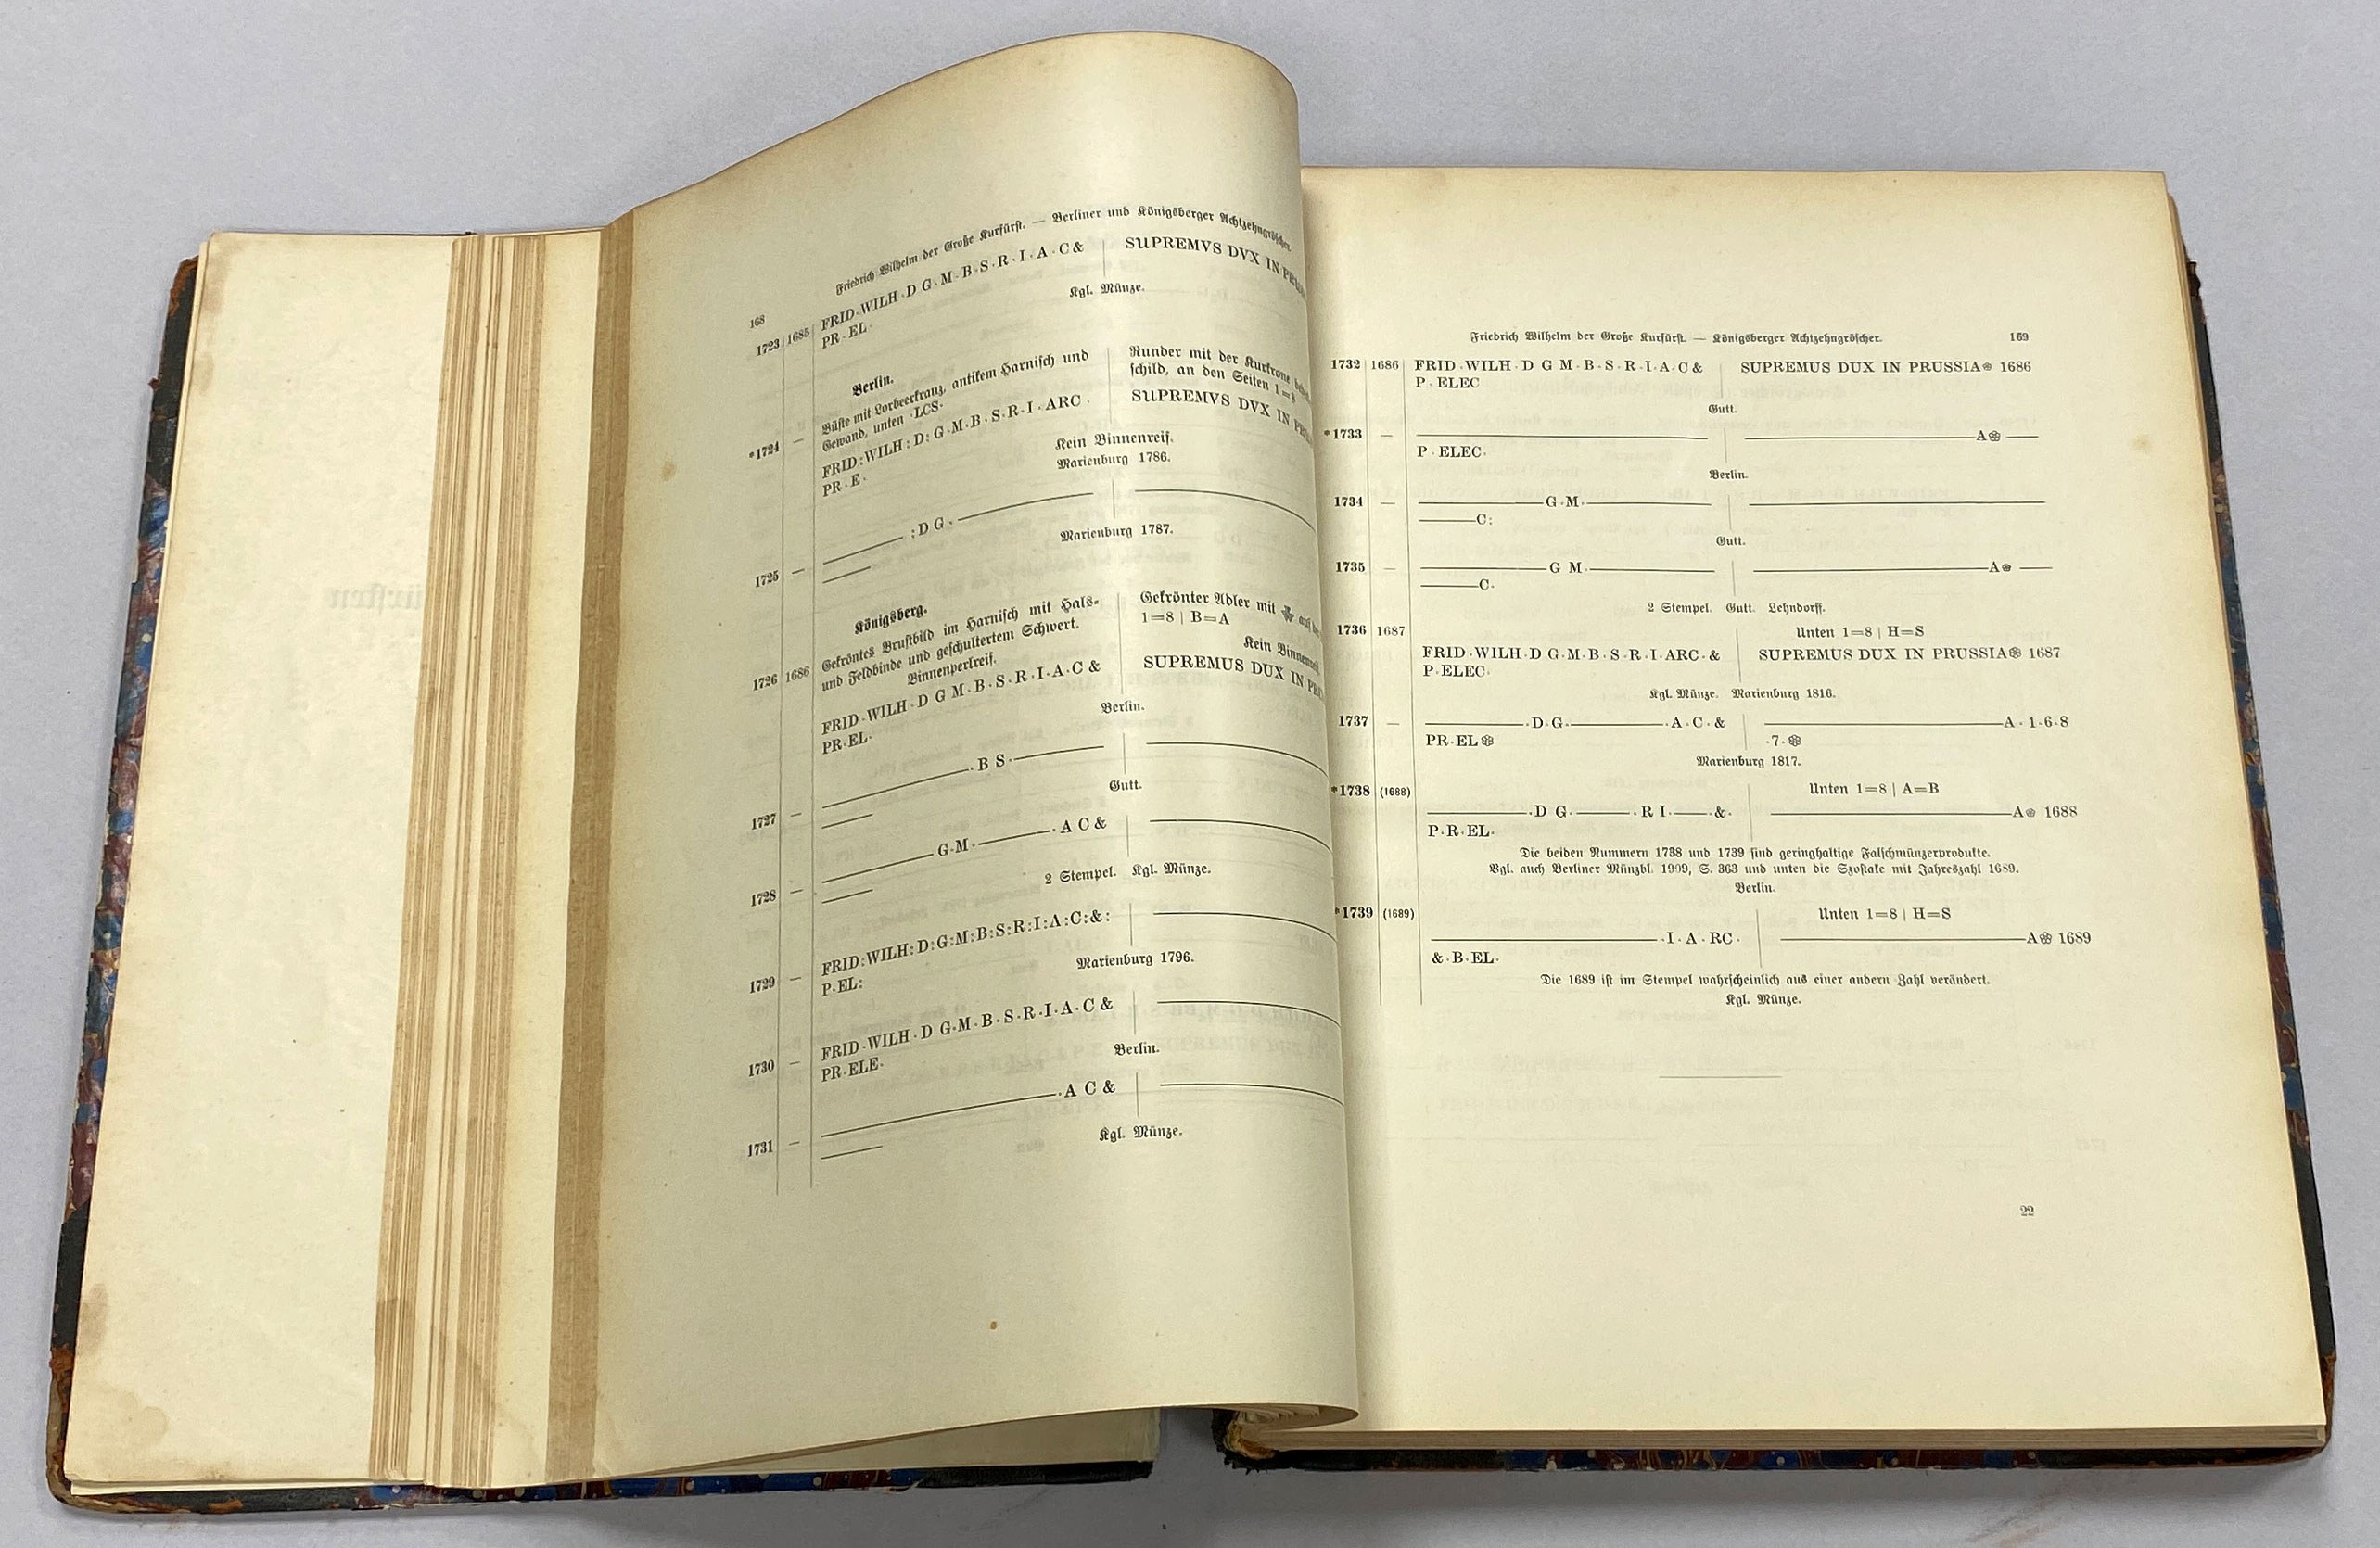 168
Friedrich Wilhelm der Große Kurfürst. — Berliner und Königsberger Achtzehngröscher.
1723 1685 FRID·WILH·D G·M·B·S·R·I·A·C & SUPREMVS DVX IN
PR·EL·
Kgl. Münze.
Berlin.
*1724 — Büste mit Lorbeerkranz, antikem Harnisch und Runder mit der Kurkrone
Gewand, unten ·LCS· schild, an den Seiten 1=8
FRID:WILH:D:G·M·B·S·R·I·ARC· SUPREMVS DVX IN
PR·E·
Kein Binnenreif.
Marienburg 1786.
1725 — ——— :D G· ———
———
Marienburg 1787.
Königsberg.
1726 1686 Gekröntes Brustbild im Harnisch mit Hals- Gekrönter Adler mit auf
und Feldbinde und geschultertem Schwert. 1=8 | B=A
Binnenperlreif. Kein
FRID·WILH·D G M·B·S·R·I·A·C & SUPREMUS DUX IN
PR·EL·
Berlin.
1727 — ——— ·B S· ———
———
Gutt.
1728 — ——— G·M· ——— ·A C &
———
2 Stempel. Kgl. Münze.
1729 — FRID:WILH:D:G:M:B:S:R:I:A:C:&: ———
P·EL:
Marienburg 1796.
1730 — FRID·WILH·D G·M·B·S·R·I·A·C & ———
PR·ELE·
Berlin.
1731 — ——— ·A C & ———
———
Kgl. Münze.
Friedrich Wilhelm der Große Kurfürst. — Königsberger Achtzehngröscher. 169
1732 1686 FRID·WILH·D G M·B·S·R·I·A·C & SUPREMUS DUX IN PRUSSIA❁ 1686
P·ELEC
Gutt.
*1733 — ——— ——— A❁ ———
P·ELEC·
Berlin.
1734 — ——— G·M· ——— ———
——— C:
Gutt.
1735 — ——— G M· ——— ——— A❁ ———
——— C·
2 Stempel. Gutt. Lehndorff.
1736 1687 Unten 1=8 | H=S
FRID·WILH·D G·M·B·S·R·I·ARC·& SUPREMUS DUX IN PRUSSIA❁ 1687
P·ELEC·
Kgl. Münze. Marienburg 1816.
1737 — ——— ·D·G· ——— ·A·C·& ——— A·1·6·8
PR·EL❁ ·7·❁
Marienburg 1817.
*1738 (1688) Unten 1=8 | A=B
——— ·D G· ——— ·R I· ——— ·&· ——— A❁ 1688
P·R·EL·
Die beiden Nummern 1738 und 1739 sind geringhaltige Falschmünzerprodukte.
Vgl. auch Berliner Münzbl. 1909, S. 363 und unten die Szostake mit Jahreszahl 1689.
Berlin.
*1739 (1689) Unten 1=8 | H=S
——— ·I·A·RC· ——— A❁ 1689
&·B·EL·
Die 1689 ist im Stempel wahrscheinlich aus einer andern Zahl verändert.
Kgl. Münze.
22